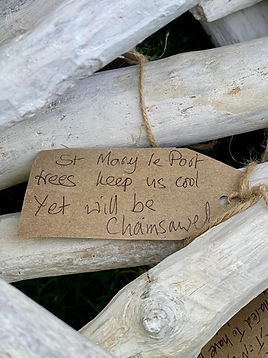 St Mary le Port
trees keep us cool
Yet will be
Chainsawed